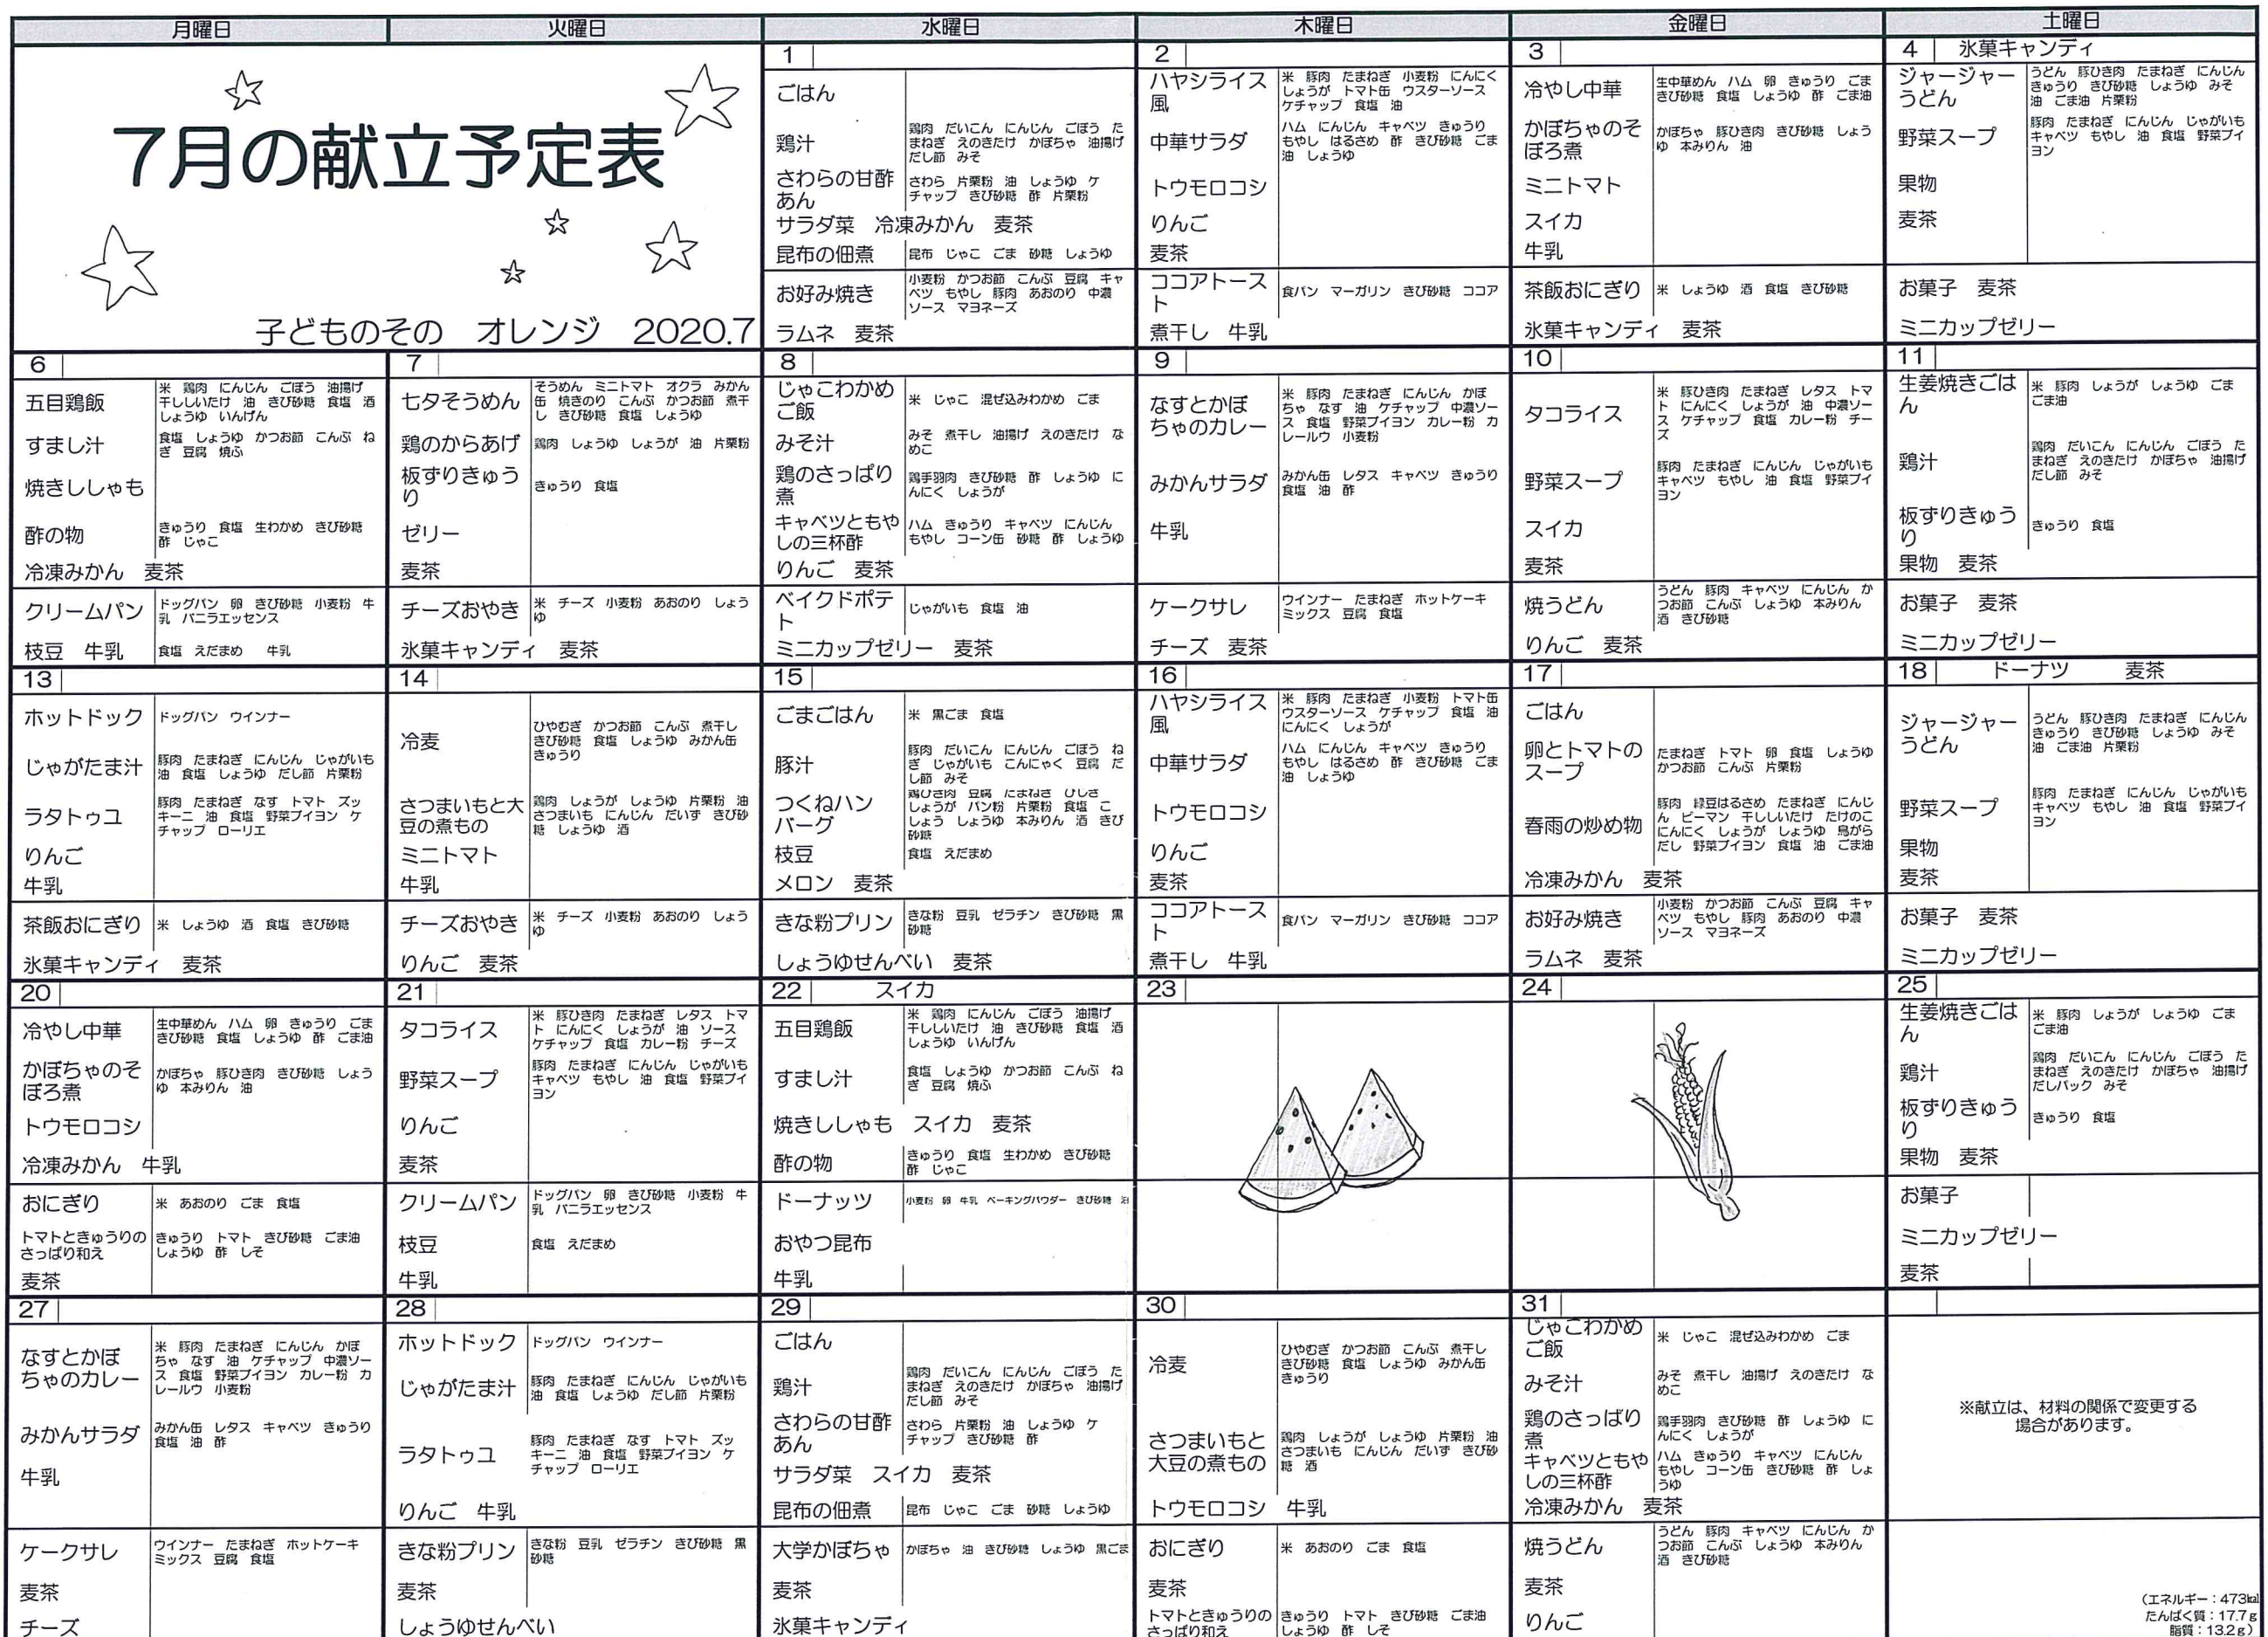 月曜日
火曜日
水曜日
木曜日
金曜日
土曜日
7月の献立予定表
子どものその　オレンジ　2020.7
1
ごはん
鶏汁
鶏肉　だいこん　にんじん　ごぼう　た
まねぎ　えのきたけ　かぼちゃ　油揚げ
だし節　みそ
さわらの甘酢
あん
さわら　片栗粉　油　しょうゆ　ケ
チャップ　きび砂糖　酢　片栗粉
サラダ菜　冷凍みかん　麦茶
昆布の佃煮
昆布　じゃこ　ごま　砂糖　しょうゆ
お好み焼き
小麦粉　かつお節　こんぶ　豆腐　キャ
ベツ　もやし　豚肉　あおのり　中濃
ソース　マヨネーズ
ラムネ　麦茶
2
ハヤシライス
風
米　豚肉　たまねぎ　小麦粉　にんにく
しょうが　トマト缶　ウスターソース
ケチャップ　食塩　油
中華サラダ
ハム　にんじん　キャベツ　きゅうり
もやし　はるさめ　酢　きび砂糖　ごま
油　しょうゆ
トウモロコシ
りんご
麦茶
ココアトース
ト
食パン　マーガリン　きび砂糖　ココア
煮干し　牛乳
3
冷やし中華
生中華めん　ハム　卵　きゅうり　ごま
きび砂糖　食塩　しょうゆ　酢　ごま油
かぼちゃのそ
ぼろ煮
かぼちゃ　豚ひき肉　きび砂糖　しょう
ゆ　本みりん　油
ミニトマト
スイカ
牛乳
茶飯おにぎり
米　しょうゆ　酒　食塩　きび砂糖
氷菓キャンディ　麦茶
4　氷菓キャンディ
ジャージャー
うどん
うどん　豚ひき肉　たまねぎ　にんじん
きゅうり　きび砂糖　しょうゆ　みそ
油　ごま油　片栗粉
野菜スープ
豚肉　たまねぎ　にんじん　じゃがいも
キャベツ　もやし　油　食塩　野菜ブイ
ヨン
果物
麦茶
お菓子　麦茶
ミニカップゼリー
6
五目鶏飯
米　鶏肉　にんじん　ごぼう　油揚げ
干ししいたけ　油　きび砂糖　食塩　酒
しょうゆ　いんげん
すまし汁
食塩　しょうゆ　かつお節　こんぶ　ね
ぎ　豆腐　焼ふ
焼きししゃも
酢の物
きゅうり　食塩　生わかめ　きび砂糖
酢　じゃこ
冷凍みかん　麦茶
クリームパン
ドッグパン　卵　きび砂糖　小麦粉　牛
乳　バニラエッセンス
枝豆　牛乳
食塩　えだまめ　　牛乳
7
七夕そうめん
そうめん　ミニトマト　オクラ　みかん
缶　焼きのり　こんぶ　かつお節　煮干
し　きび砂糖　食塩　しょうゆ
鶏のからあげ
鶏肉　しょうゆ　しょうが　油　片栗粉
板ずりきゅう
り
きゅうり　食塩
ゼリー
麦茶
チーズおやき
米　チーズ　小麦粉　あおのり　しょう
ゆ
氷菓キャンディ　麦茶
8
じゃこわかめ
ご飯
米　じゃこ　混ぜ込みわかめ　ごま
みそ汁
みそ　煮干し　油揚げ　えのきたけ　な
めこ
鶏のさっぱり
煮
鶏手羽肉　きび砂糖　酢　しょうゆ　に
んにく　しょうが
キャベツともや
しの三杯酢
ハム　きゅうり　キャベツ　にんじん
もやし　コーン缶　砂糖　酢　しょうゆ
りんご　麦茶
ベイクドポテ
ト
じゃがいも　食塩　油
ミニカップゼリー　麦茶
9
なすとかぼ
ちゃのカレー
米　豚肉　たまねぎ　にんじん　かぼ
ちゃ　なす　油　ケチャップ　中濃ソー
ス　食塩　野菜ブイヨン　カレー粉　カ
レールウ　小麦粉
みかんサラダ
みかん缶　レタス　キャベツ　きゅうり
食塩　油　酢
牛乳
ケークサレ
ウインナー　たまねぎ　ホットケーキ
ミックス　豆腐　食塩
チーズ　麦茶
10
タコライス
米　豚ひき肉　たまねぎ　レタス　トマ
ト　にんにく　しょうが　油　中濃ソー
ス　ケチャップ　食塩　カレー粉　チー
ズ
野菜スープ
豚肉　たまねぎ　にんじん　じゃがいも
キャベツ　もやし　油　食塩　野菜ブイ
ヨン
スイカ
麦茶
焼うどん
うどん　豚肉　キャベツ　にんじん　か
つお節　こんぶ　しょうゆ　本みりん
酒　きび砂糖
りんご　麦茶
11
生姜焼きごは
ん
米　豚肉　しょうが　しょうゆ　ごま
ごま油
鶏汁
鶏肉　だいこん　にんじん　ごぼう　た
まねぎ　えのきたけ　かぼちゃ　油揚げ
だし節　みそ
板ずりきゅう
り
きゅうり　食塩
果物　麦茶
お菓子　麦茶
ミニカップゼリー
13
ホットドック
ドッグパン　ウインナー
じゃがたま汁
豚肉　たまねぎ　にんじん　じゃがいも
油　食塩　しょうゆ　だし節　片栗粉
ラタトゥユ
豚肉　たまねぎ　なす　トマト　ズッ
キーニ　油　食塩　野菜ブイヨン　ケ
チャップ　ローリエ
りんご
牛乳
茶飯おにぎり
米　しょうゆ　酒　食塩　きび砂糖
氷菓キャンディ　麦茶
14
冷麦
ひやむぎ　かつお節　こんぶ　煮干し
きび砂糖　食塩　しょうゆ　みかん缶
きゅうり
さつまいもと大
豆の煮もの
鶏肉　しょうが　しょうゆ　片栗粉　油
さつまいも　にんじん　だいず　きび砂
糖　しょうゆ　酒
ミニトマト
牛乳
チーズおやき
米　チーズ　小麦粉　あおのり　しょう
ゆ
りんご　麦茶
15
ごまごはん
米　黒ごま　食塩
豚汁
豚肉　だいこん　にんじん　ごぼう　ね
ぎ　じゃがいも　こんにゃく　豆腐　だ
し節　みそ
つくねハン
バーグ
鶏ひき肉　豆腐　たまねぎ　ひじき
しょうが　パン粉　片栗粉　食塩　こ
しょう　しょうゆ　本みりん　酒　きび
砂糖
枝豆
食塩　えだまめ
メロン　麦茶
きな粉プリン
きな粉　豆乳　ゼラチン　きび砂糖　黒
砂糖
しょうゆせんべい　麦茶
16
ハヤシライス
風
米　豚肉　たまねぎ　小麦粉　トマト缶
ウスターソース　ケチャップ　食塩　油
にんにく　しょうが
中華サラダ
ハム　にんじん　キャベツ　きゅうり
もやし　はるさめ　酢　きび砂糖　ごま
油　しょうゆ
トウモロコシ
りんご
麦茶
ココアトース
ト
食パン　マーガリン　きび砂糖　ココア
煮干し　牛乳
17
ごはん
卵とトマトの
スープ
たまねぎ　トマト　卵　食塩　しょうゆ
かつお節　こんぶ　片栗粉
春雨の炒め物
豚肉　緑豆はるさめ　たまねぎ　にんじ
ん　ピーマン　干ししいたけ　たけのこ
にんにく　しょうが　しょうゆ　鳥がら
だし　野菜ブイヨン　食塩　油　ごま油
冷凍みかん　麦茶
お好み焼き
小麦粉　かつお節　こんぶ　豆腐　キャ
ベツ　もやし　豚肉　あおのり　中濃
ソース　マヨネーズ
ラムネ　麦茶
18　ドーナツ　麦茶
ジャージャー
うどん
うどん　豚ひき肉　たまねぎ　にんじん
きゅうり　きび砂糖　しょうゆ　みそ
油　ごま油　片栗粉
野菜スープ
豚肉　たまねぎ　にんじん　じゃがいも
キャベツ　もやし　油　食塩　野菜ブイ
ヨン
果物
麦茶
お菓子　麦茶
ミニカップゼリー
20
冷やし中華
生中華めん　ハム　卵　きゅうり　ごま
きび砂糖　食塩　しょうゆ　酢　ごま油
かぼちゃのそ
ぼろ煮
かぼちゃ　豚ひき肉　きび砂糖　しょう
ゆ　本みりん　油
トウモロコシ
冷凍みかん　牛乳
おにぎり
米　あおのり　ごま　食塩
トマトときゅうりの
さっぱり和え
きゅうり　トマト　きび砂糖　ごま油
しょうゆ　酢　しそ
麦茶
21
タコライス
米　豚ひき肉　たまねぎ　レタス　トマ
ト　にんにく　しょうが　油　ソース
ケチャップ　食塩　カレー粉　チーズ
野菜スープ
豚肉　たまねぎ　にんじん　じゃがいも
キャベツ　もやし　油　食塩　野菜ブイ
ヨン
りんご
麦茶
クリームパン
ドッグパン　卵　きび砂糖　小麦粉　牛
乳　バニラエッセンス
枝豆
食塩　えだまめ
牛乳
22　スイカ
五目鶏飯
米　鶏肉　にんじん　ごぼう　油揚げ
干ししいたけ　油　きび砂糖　食塩　酒
しょうゆ　いんげん
すまし汁
食塩　しょうゆ　かつお節　こんぶ　ね
ぎ　豆腐　焼ふ
焼きししゃも　スイカ　麦茶
酢の物
きゅうり　食塩　生わかめ　きび砂糖
酢　じゃこ
ドーナッツ
小麦粉　卵　牛乳　ベーキングパウダー　きび砂糖　油
おやつ昆布
牛乳
23
24
25
生姜焼きごは
ん
米　豚肉　しょうが　しょうゆ　ごま
ごま油
鶏汁
鶏肉　だいこん　にんじん　ごぼう　た
まねぎ　えのきたけ　かぼちゃ　油揚げ
だしパック　みそ
板ずりきゅう
り
きゅうり　食塩
果物　麦茶
お菓子
ミニカップゼリー
麦茶
27
なすとかぼ
ちゃのカレー
米　豚肉　たまねぎ　にんじん　かぼ
ちゃ　なす　油　ケチャップ　中濃ソー
ス　食塩　野菜ブイヨン　カレー粉　カ
レールウ　小麦粉
みかんサラダ
みかん缶　レタス　キャベツ　きゅうり
食塩　油　酢
牛乳
ケークサレ
ウインナー　たまねぎ　ホットケーキ
ミックス　豆腐　食塩
麦茶
チーズ
28
ホットドック
ドッグパン　ウインナー
じゃがたま汁
豚肉　たまねぎ　にんじん　じゃがいも
油　食塩　しょうゆ　だし節　片栗粉
ラタトゥユ
豚肉　たまねぎ　なす　トマト　ズッ
キーニ　油　食塩　野菜ブイヨン　ケ
チャップ　ローリエ
りんご　牛乳
きな粉プリン
きな粉　豆乳　ゼラチン　きび砂糖　黒
砂糖
麦茶
しょうゆせんべい
29
ごはん
鶏汁
鶏肉　だいこん　にんじん　ごぼう　た
まねぎ　えのきたけ　かぼちゃ　油揚げ
だし節　みそ
さわらの甘酢
あん
さわら　片栗粉　油　しょうゆ　ケ
チャップ　きび砂糖　酢
サラダ菜　スイカ　麦茶
昆布の佃煮
昆布　じゃこ　ごま　砂糖　しょうゆ
大学かぼちゃ
かぼちゃ　油　きび砂糖　しょうゆ　黒ごま
麦茶
氷菓キャンディ
30
冷麦
ひやむぎ　かつお節　こんぶ　煮干し
きび砂糖　食塩　しょうゆ　みかん缶
きゅうり
さつまいもと
大豆の煮もの
鶏肉　しょうが　しょうゆ　片栗粉　油
さつまいも　にんじん　だいず　きび砂
糖　酒
トウモロコシ　牛乳
おにぎり
米　あおのり　ごま　食塩
麦茶
トマトときゅうりの
さっぱり和え
きゅうり　トマト　きび砂糖　ごま油
しょうゆ　酢　しそ
31
じゃこわかめ
ご飯
米　じゃこ　混ぜ込みわかめ　ごま
みそ汁
みそ　煮干し　油揚げ　えのきたけ　な
めこ
鶏のさっぱり
煮
鶏手羽肉　きび砂糖　酢　しょうゆ　に
んにく　しょうが
キャベツともや
しの三杯酢
ハム　きゅうり　キャベツ　にんじん
もやし　コーン缶　きび砂糖　酢　しょ
うゆ
冷凍みかん　麦茶
焼うどん
うどん　豚肉　キャベツ　にんじん　か
つお節　こんぶ　しょうゆ　本みりん
酒　きび砂糖
麦茶
りんご
※献立は、材料の関係で変更する
場合があります。
（エネルギー：473㎉
たんぱく質：17.7ｇ
脂質：13.2ｇ）